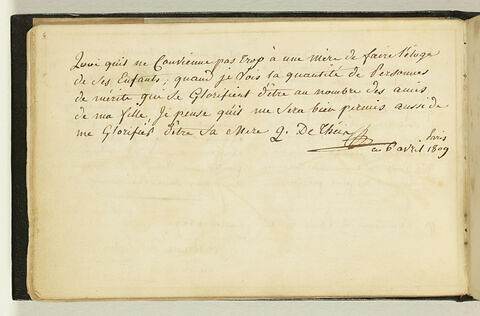 Quoi quil ne Convienne pas trop à une mère de faire l'éloge
de ses Enfants, quand je vois la quantité de Personnes
de mérite qui se Glorifient d'être au nombre des amis
de ma fille, Je pense qu'il me sera bien permis aussi de
me Glorifier d'être sa Mere De Théis
Paris
ce 6 avril 1809